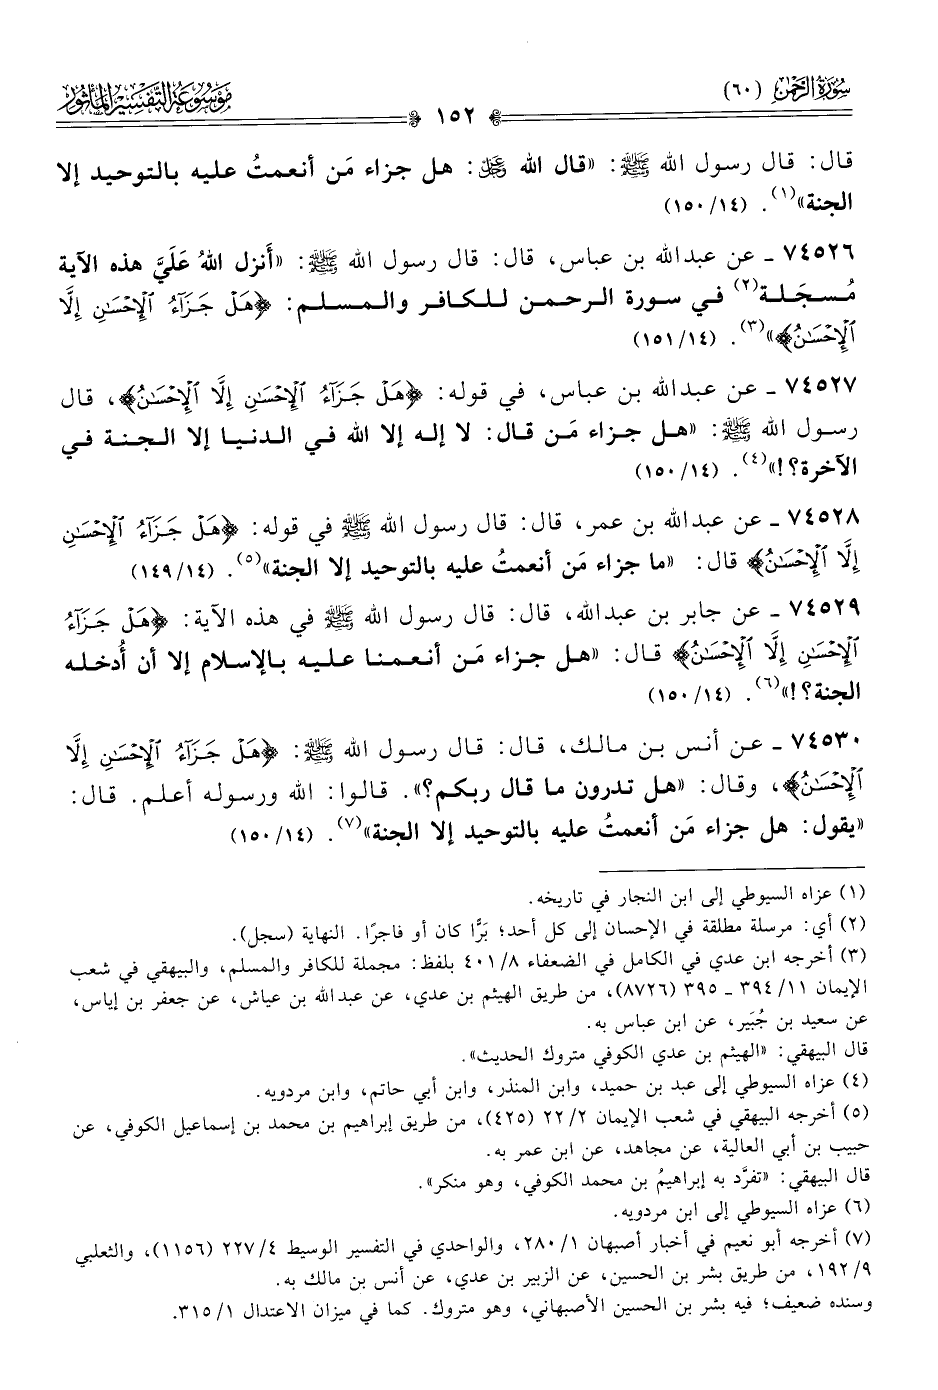 سورة الرحمن (٦٠)
موسوعة التفسير المأثور
١٥٢
قال: قال رسول الله ﷺ: «قال الله ﷿: هل جزاء مَن أنعمتُ عليه بالتوحيد إلا
الجنة»(١). (١٤/ ١٥٠)
٧٤٥٢٦ ـ عن عبدالله بن عباس، قال: قال رسول الله ﷺ: «أَنزل اللهُ عَلَيَّ هذه الآية
مُسجَلة(٢) في سورة الرحمن للكافر والمسلم: ﴿هَلْ جَزَآءُ ٱلْإِحْسَٰنِ إِلَّا
ٱلْإِحْسَٰنُ﴾»(٣). (١٤/ ١٥١)
٧٤٥٢٧ ـ عن عبدالله بن عباس، في قوله: ﴿هَلْ جَزَآءُ ٱلْإِحْسَٰنِ إِلَّا ٱلْإِحْسَٰنُ﴾، قال
رسول الله ﷺ: «هل جزاء مَن قال: لا إله إلا الله في الدنيا إلا الجنة في
الآخرة؟!»(٤). (١٤/ ١٥٠)
٧٤٥٢٨ ـ عن عبدالله بن عمر، قال: قال رسول الله ﷺ في قوله: ﴿هَلْ جَزَآءُ ٱلْإِحْسَٰنِ
إِلَّا ٱلْإِحْسَٰنُ﴾ قال: «ما جزاء مَن أنعمتُ عليه بالتوحيد إلا الجنة»(٥). (١٤/ ١٤٩)
٧٤٥٢٩ ـ عن جابر بن عبدالله، قال: قال رسول الله ﷺ في هذه الآية: ﴿هَلْ جَزَآءُ
ٱلْإِحْسَٰنِ إِلَّا ٱلْإِحْسَٰنُ﴾ قال: «هل جزاء مَن أنعمنا عليه بالإسلام إلا أن أُدخله
الجنة؟!»(٦). (١٤/ ١٥٠)
٧٤٥٣٠ ـ عن أنس بن مالك، قال: قال رسول الله ﷺ: ﴿هَلْ جَزَآءُ ٱلْإِحْسَٰنِ إِلَّا
ٱلْإِحْسَٰنُ﴾، وقال: «هل تدرون ما قال ربكم؟». قالوا: الله ورسوله أعلم. قال:
«يقول: هل جزاء مَن أنعمتُ عليه بالتوحيد إلا الجنة»(٧). (١٤/ ١٥٠)
(١) عزاه السيوطي إلى ابن النجار في تاريخه.
(٢) أي: مرسلة مطلقة في الإحسان إلى كل أحد؛ بَرًّا كان أو فاجرًا. النهاية (سجل).
(٣) أخرجه ابن عدي في الكامل في الضعفاء ٨/ ٤٠١ بلفظ: مجملة للكافر والمسلم، والبيهقي في شعب
الإيمان ١١/ ٣٩٤ ـ ٣٩٥ (٨٧٢٦)، من طريق الهيثم بن عدي، عن عبدالله بن عياش، عن جعفر بن إياس،
عن سعيد بن جُبَير، عن ابن عباس به.
قال البيهقي: «الهيثم بن عدي الكوفي متروك الحديث».
(٤) عزاه السيوطي إلى عبد بن حميد، وابن المنذر، وابن أبي حاتم، وابن مردويه.
(٥) أخرجه البيهقي في شعب الإيمان ٢/ ٢٢ (٤٢٥)، من طريق إبراهيم بن محمد بن إسماعيل الكوفي، عن
حبيب بن أبي العالية، عن مجاهد، عن ابن عمر به.
قال البيهقي: «تفرَّد به إبراهيمُ بن محمد الكوفي، وهو منكر».
(٦) عزاه السيوطي إلى ابن مردويه.
(٧) أخرجه أبو نعيم في أخبار أصبهان ١/ ٢٨٠، والواحدي في التفسير الوسيط ٤/ ٢٢٧ (١١٥٦)، والثعلبي
٩/ ١٩٢، من طريق بشر بن الحسين، عن الزبير بن عدي، عن أنس بن مالك به.
وسنده ضعيف؛ فيه بشر بن الحسين الأصبهاني، وهو متروك. كما في ميزان الاعتدال ١/ ٣١٥.